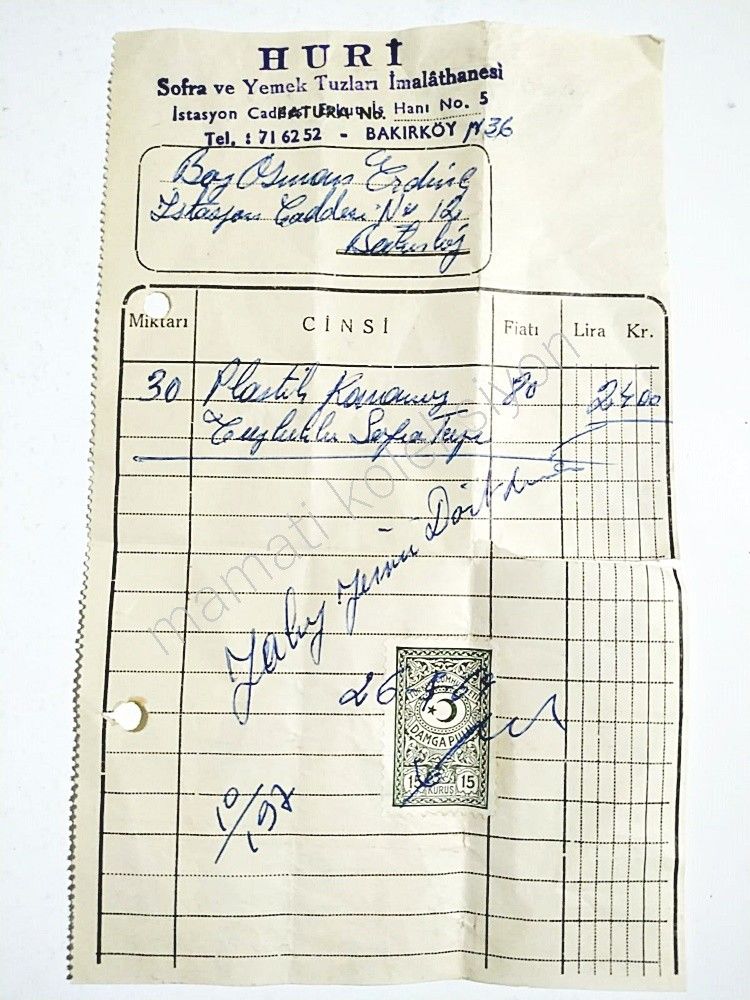 HURİ
Sofra ve Yemek Tuzları İmalâthanesi
İstasyon Caddesi Erkut İş Hanı No. 5
FATURA No.
Tel. : 71 62 52 - BAKIRKÖY
36
Bay Osman Erdinç
İstasyon Caddesi No 12
Bakırköy
Miktarı CİNSİ Fiatı Lira Kr.
30 Plastik 80 24 00
Sofra
Yalnız Yirmi Dört
26
DAMGA PULU
15 KURUŞ 15
10/197
mamati koleksiyon